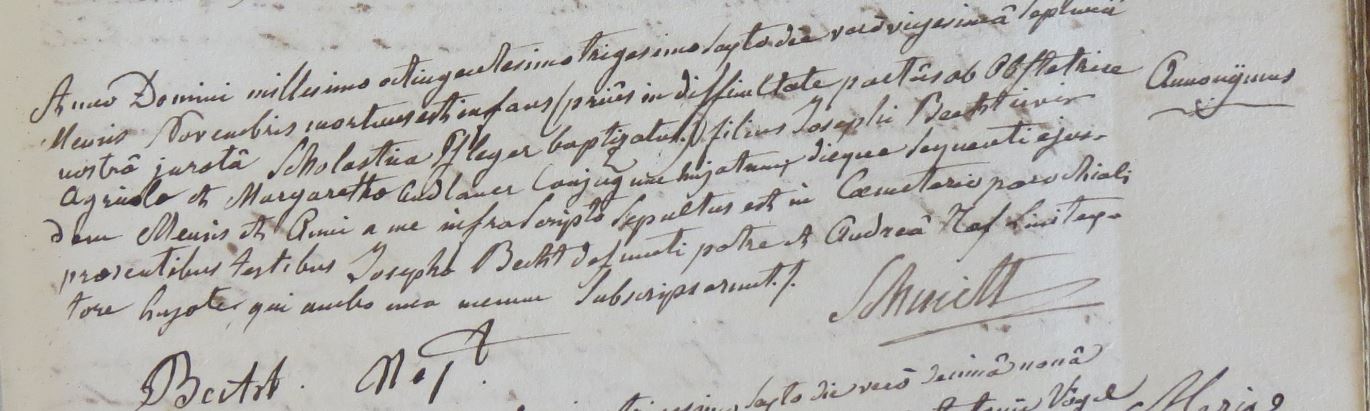 Anno Domini millesimo octingentesimo trigesimo sexto die verò vigesimâ septimâ
Mensis Novembris mortuus est infans (priùs in difficultate partûs ab Obstetrice
nostrâ juratâ Scholastica Pfleger baptizatus) filius Josephi Becht civis
Agricolæ et Margarethæ Andlauer Conjugum hujatum, dieque sequenti ejus-
dem Mensis et Anni a me infrascripto Sepultus est in Cœmeterio parochiali
præsentibus testibus Josepho Becht defuncti patre et Andreâ Nef Linitex-
tore hujate, qui ambo una mecum Subscripserunt./.
Annonÿmus
Schmitt
Becht. Nef
sexto die verò decimâ nonâ
Vogel
Maria